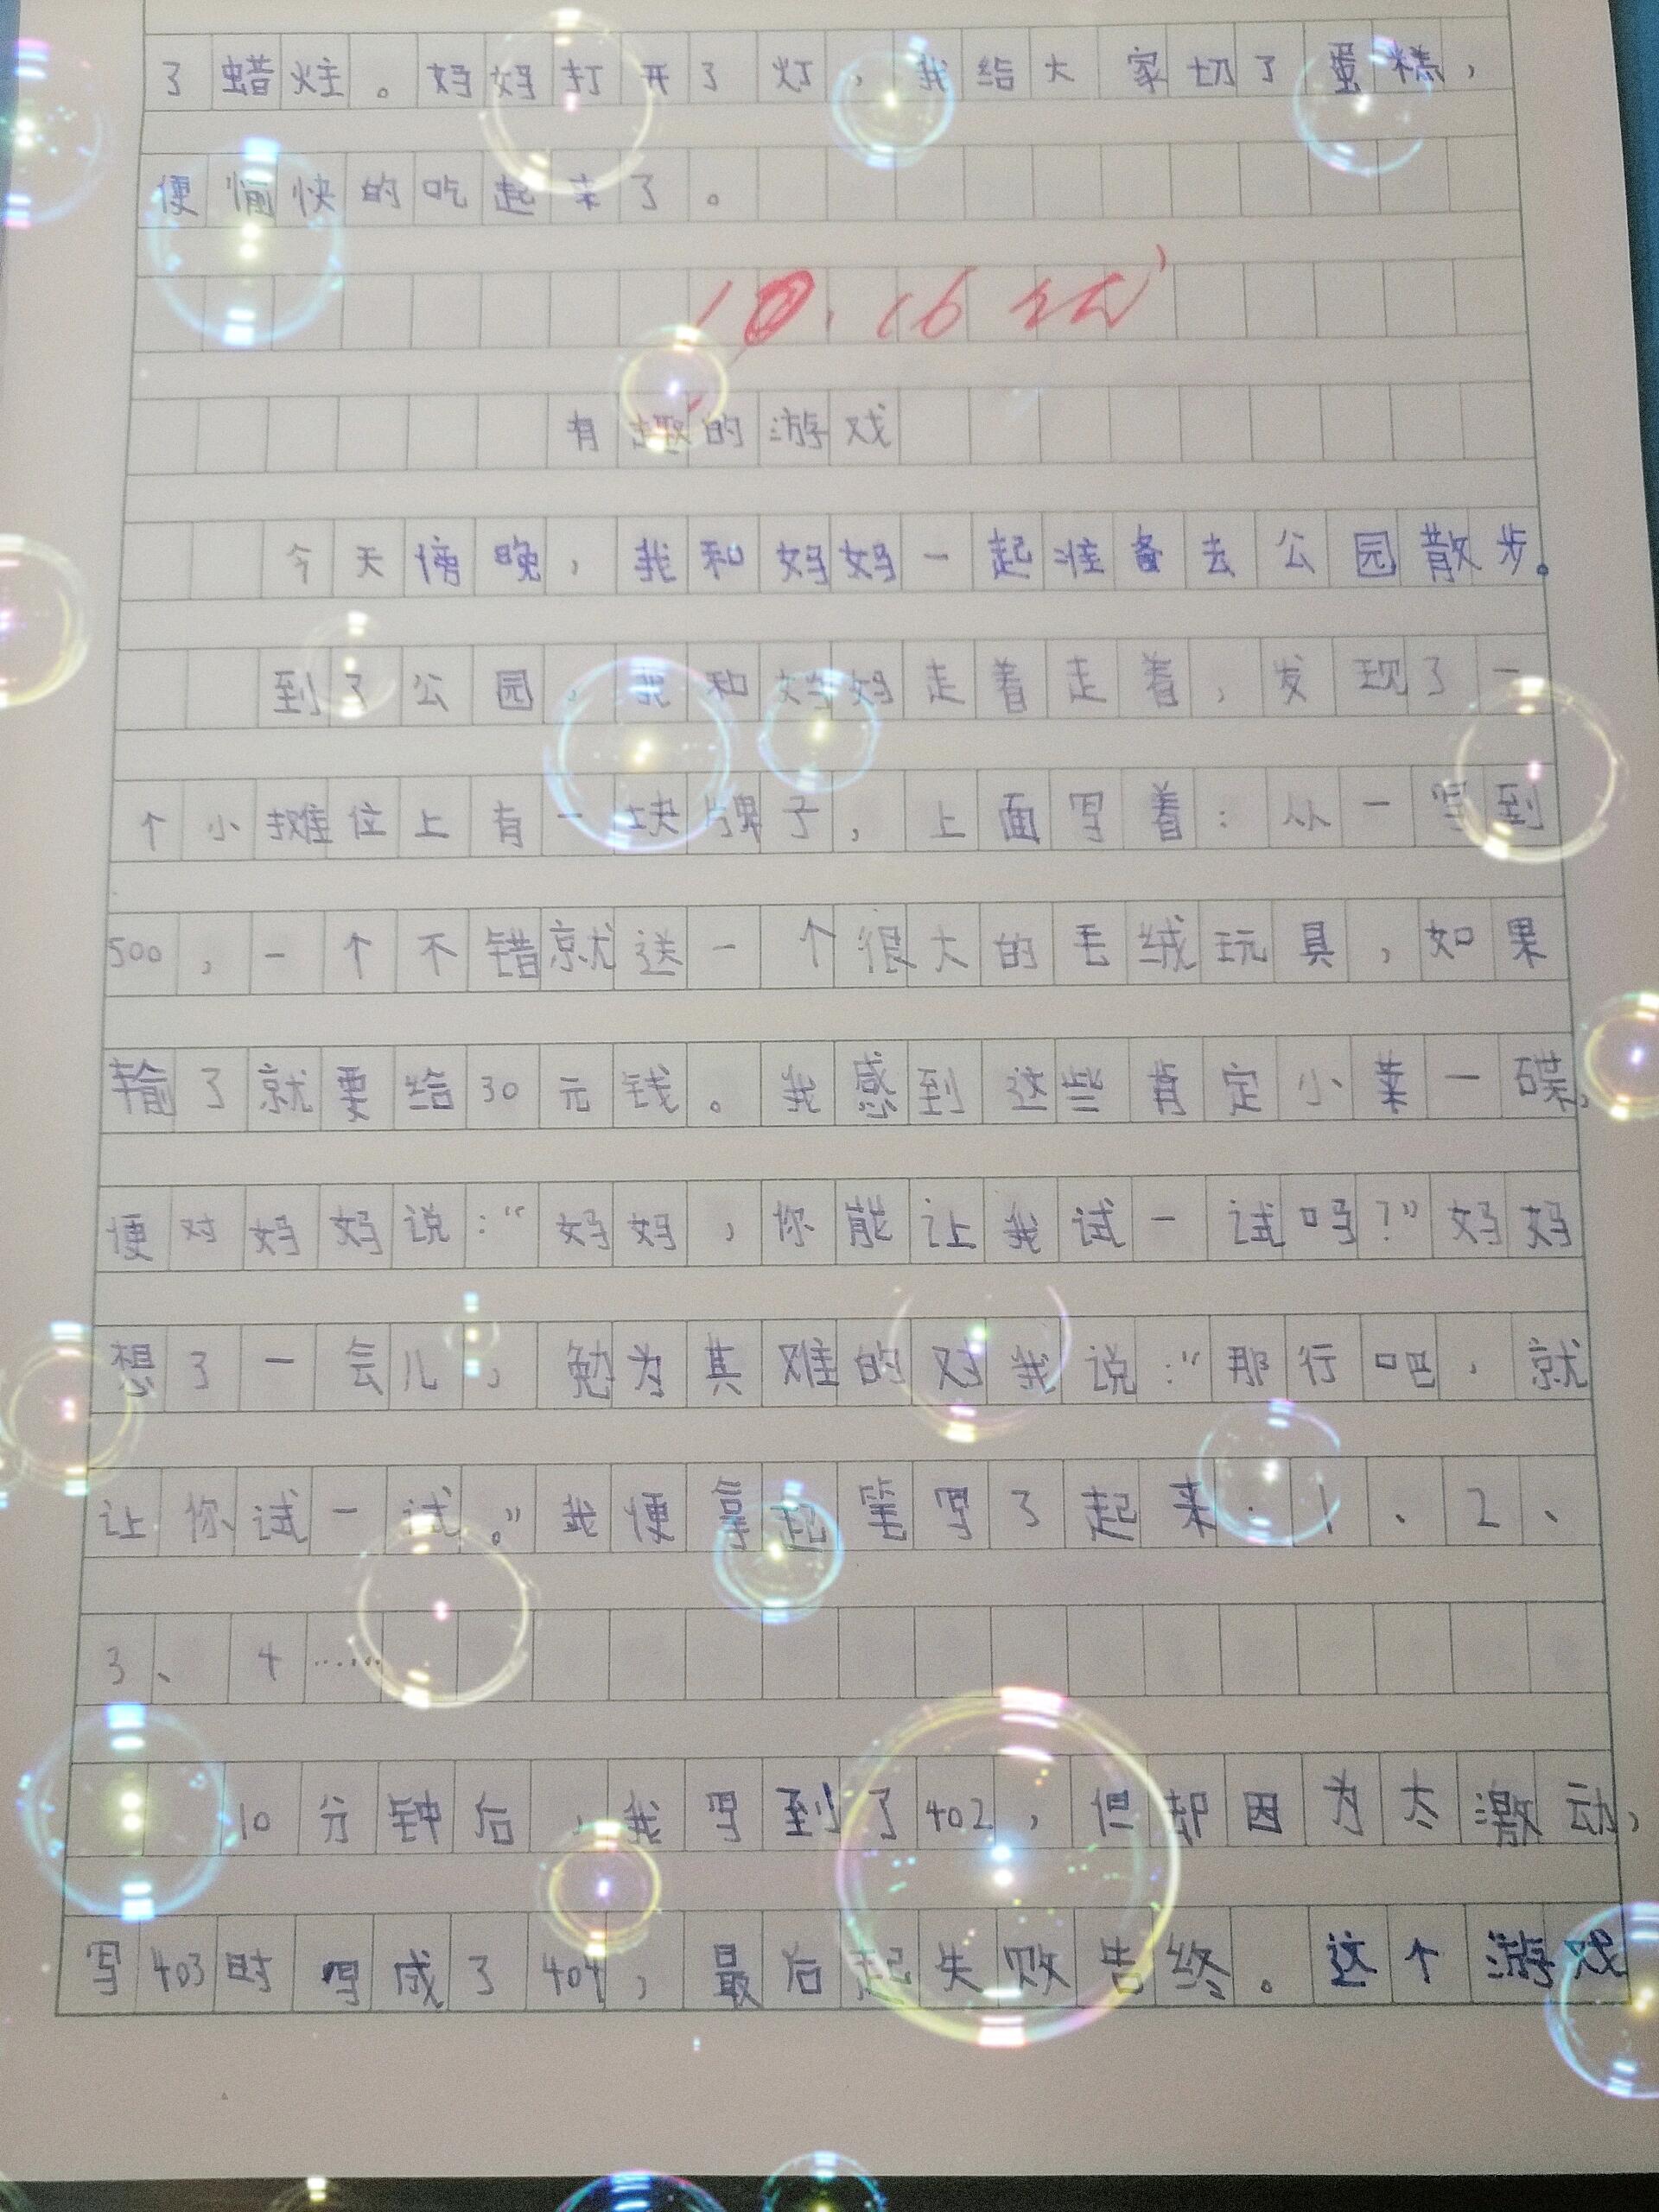 了蜡烛。妈妈打开了灯，我给大家切了蛋糕，
便愉快的吃起来了。
10.16
有趣的游戏
今天傍晚，我和妈妈一起准备去公园散步。
到了公园，我和妈妈走着走着，发现了一
个小摊位上有一块牌子，上面写着：从一写到
500，一个不错就送一个很大的毛绒玩具，如果
输了就要给30元钱。我感到这些肯定小菜一碟，
便对妈妈说：“妈妈，你能让我试一试吗？”妈妈
想了一会儿，勉为其难的对我说：“那行吧，就
让你试一试。”我便拿起笔写了起来：1、2、
3、4……
10分钟后，我写到了402，但却因为太激动，
写403时写成了404，最后起失败告终。这个游戏